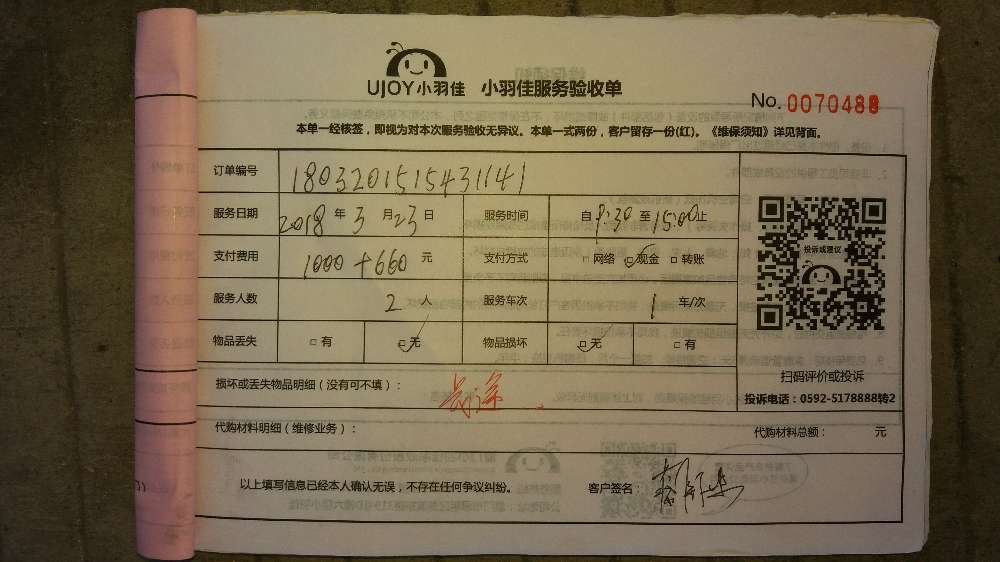 UJOY小羽佳 小羽佳服务验收单
No. 0070488
本单一经核签，即视为对本次服务验收无异议。本单一式两份，客户留存一份(红)。《维保须知》详见背面。
订单编号 1803201515431141
服务日期 2018 年 3 月 23 日 服务时间 自 9:30 至 15:00 止
支付费用 1000+660 元 支付方式 □ 网络 ☑ 现金 □ 转账
服务人数 2 人 服务车次 1 车/次
物品丢失 □ 有 ☑ 无 物品损坏 ☑ 无 □ 有
投诉或建议
扫码评价或投诉
投诉电话：0592-5178888转2
损坏或丢失物品明细（没有可不填）：
代购材料明细（维修业务）： 代购材料总额： 元
以上填写信息已经本人确认无误，不存在任何争议纠纷。 客户签名：